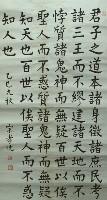 君子之道本諸身徵諸庶民考
諸三王而不繆建諸天地而不
悖質諸鬼神而無疑百世以俟
聖人而不惑質諸鬼神而無疑
知天也百世以俟聖人而不惑
知人也